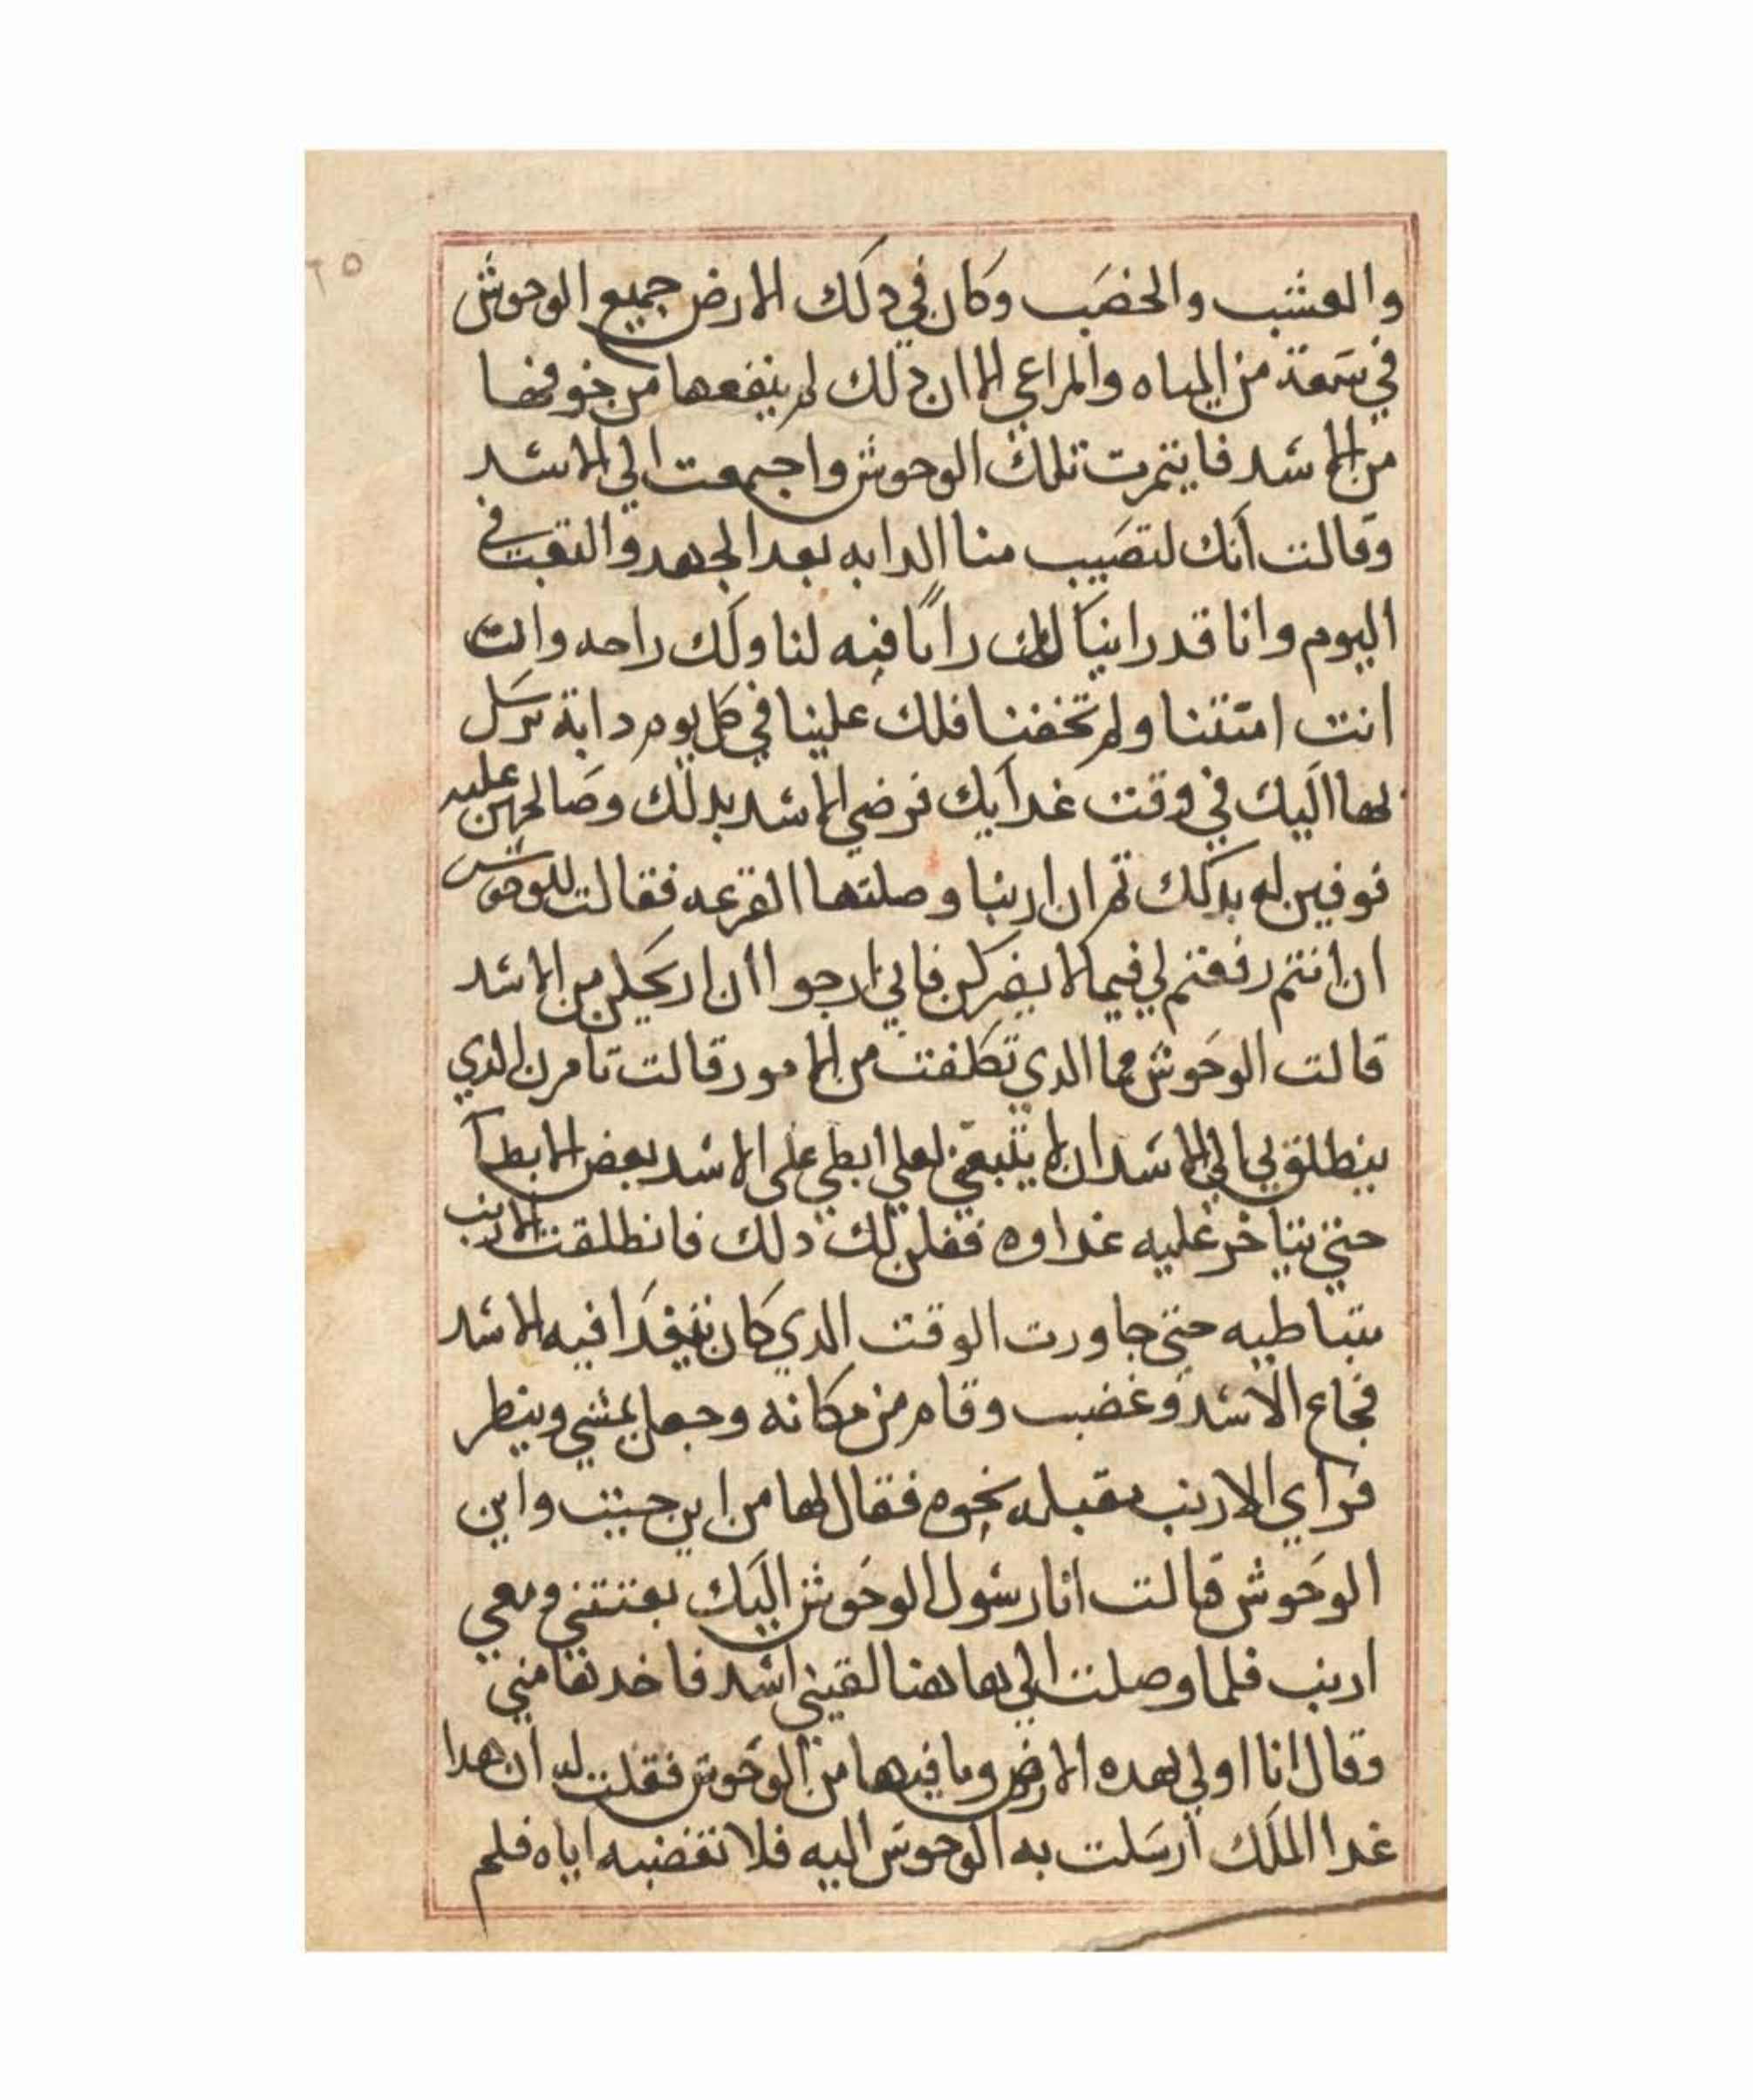 ٦٥
والعشب والخصب وكان في دلك الارض جميع الوحوش
في سعة من المياه والمراعي الا ان ذلك لم ينفعها من خوفها
من الاسد فايتمرت تلك الوحوش واجتمعت الي الاسد
وقالت انك لتصيب منا الدابه بعد الجهد والتعب في
اليوم وانا قد راينا لك راىا فيه لنا ولك راحه وانت
انت امنتنا ولم تخفنا فلك علينا في كل يوم دابة نرسل
بها اليك في وقت غدايك فرضي الاسد بدلك وصالحهن عليه
فوفين له بدلك ثم ان ارنبا وصلتها القرعه فقالت للوحوش
ان انتم رفقتم لي فيما لا يضركن فاني ارجوا ان اريحكن من الاسد
قالت الوحوش فما الدي تكلفت من الامور قالت تامرن الدي
ينطلق بي الي الاسد ان لا يتبعني لعلي ابطي علي الاسد بعض الابطا
حتي يتاخر عليه غداوه ففلن لك دلك فانطلقت الارنب
متباطيه حتي جاورت الوقت الدي كان يتغدا فيه الاسد
فجاع الاسد وغضب وقام من مكانه وجعل يمشي وينطر
فراي الارنب مقبله نحوه فقال لها من اين جيت واين
الوحوش قالت انا رسول الوحوش اليك بعتتني ومعي
ارنب فلما وصلت الي هاهنا لقيني اسد فاخدها مني
وقال انا اولي بهده الارض وما فيها من الوحوش فقلت له ان هدا
غدا الملك ارسلت به الوحوش اليه فلا تغضبه اياه فلم